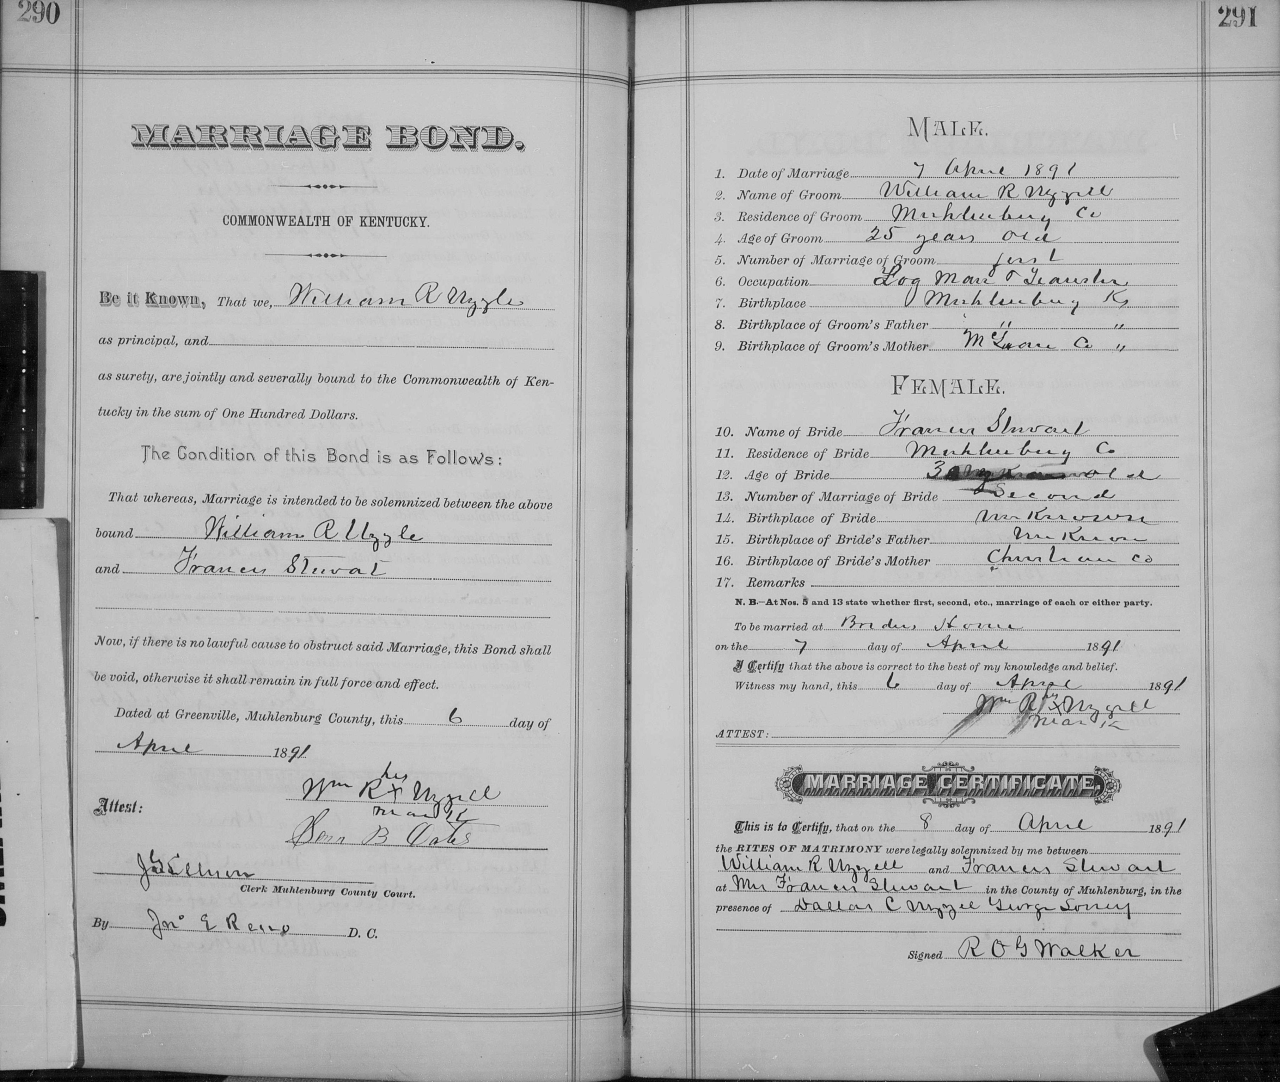 290
MARRIAGE BOND.
COMMONWEALTH OF KENTUCKY.
Be it Known, That we, William R Uzzle
as principal, and
as surety, are jointly and severally bound to the Commonwealth of Ken-
tucky in the sum of One Hundred Dollars.
The Condition of this Bond is as Follows:
That whereas, Marriage is intended to be solemnized between the above
bound William R Uzzle
and Francis Stewat
Now, if there is no lawful cause to obstruct said Marriage, this Bond shall
be void, otherwise it shall remain in full force and effect.
Dated at Greenville, Muhlenburg County, this 6 day of
April 1891
his
Wm R X Uzzell
mark
Attest:
Clerk Muhlenburg County Court.
By Jno E Reno D. C.
291
MALE.
1. Date of Marriage 7 April 1891
2. Name of Groom William R Uzzell
3. Residence of Groom Muhlenburg Co
4. Age of Groom 25 years old
5. Number of Marriage of Groom first
6. Occupation Log Man & Teamster
7. Birthplace Muhlenburg Ky
8. Birthplace of Groom's Father " "
9. Birthplace of Groom's Mother McLean Co "
FEMALE.
10. Name of Bride Francis Stewart
11. Residence of Bride Muhlenburg Co
12. Age of Bride old
13. Number of Marriage of Bride Second
14. Birthplace of Bride unknown
15. Birthplace of Bride's Father unknown
16. Birthplace of Bride's Mother Christian Co
17. Remarks
N. B.—At Nos. 5 and 13 state whether first, second, etc., marriage of each or either party.
To be married at Brides Home
on the 7 day of April 1891
I Certify that the above is correct to the best of my knowledge and belief.
Witness my hand, this 6 day of April 1891
his
Wm R X Uzzell
mark
ATTEST:
MARRIAGE CERTIFICATE.
This is to Certify, that on the 8 day of April 1891
the RITES OF MATRIMONY were legally solemnized by me between
William R Uzzell and Francis Stewart
at Mrs Francis Stewart in the County of Muhlenburg, in the
presence of Dallas C Uzzell George
Signed R O G Walker